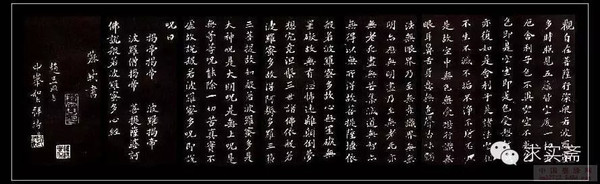 觀自在菩薩行深般若波羅蜜
多時照見五蘊皆空度一切苦
厄舍利子色不異空空不異色
色即是空空即是色受想行識
亦復如是舍利子是諸法空相
不生不滅不垢不淨不增不減
是故空中無色無受想行識無
眼耳鼻舌身意無色聲香味觸
法無眼界乃至無意識界無無
明亦無無明盡乃至無老死亦
無老死盡無苦集滅道無智亦
無得以無所得故菩提薩埵依
般若波羅蜜多故心無罣礙無
罣礙故無有恐怖遠離顛倒夢
想究竟涅槃三世諸佛依般若
波羅蜜多故得阿耨多羅三藐
三菩提故知般若波羅蜜多是
大神呪是大明呪是無上呪是
無等等呪能除一切苦真實不
虛故說般若波羅蜜多呪即說
呪曰
揭帝揭帝 波羅揭帝
波羅僧揭帝 菩提薩摩訶
佛說般若波羅蜜多心經
蘇軾書
求实斋